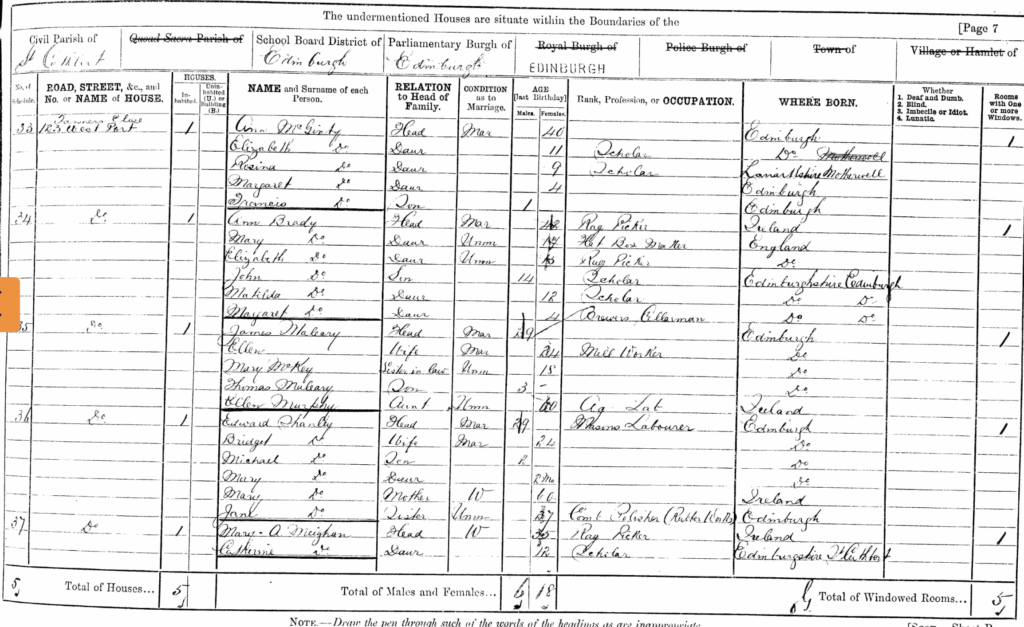 The undermentioned Houses are situate within the Boundaries of the
[Page 7
Civil Parish of Quoad Sacra Parish of School Board District of Parliamentary Burgh of Royal Burgh of Police Burgh of Town of Village or Hamlet of
St Cuthbert Edinburgh Edinburgh EDINBURGH
No. of Schedule. ROAD, STREET, &c., and No. or NAME of HOUSE. HOUSES. Inhabited. Uninhabited (U.) or Building (B.) NAME and Surname of each Person. RELATION to Head of Family. CONDITION as to Marriage. AGE [last Birthday] Males. Females. Rank, Profession, or OCCUPATION. WHERE BORN. Whether 1. Deaf and Dumb. 2. Blind. 3. Imbecile or Idiot. 4. Lunatic. Rooms with One or more Windows.
Tanners Close
33 125 West Port 1 Ann McGinty Head Mar 40 Edinburgh 1
Elizabeth Do Daur 11 Scholar Do Motherwell
Rosina Do Daur 9 Scholar Lanarkshire Motherwell
Margaret Do Daur 4 Edinburgh
Francis Do Son 1 Edinburgh
34 Do 1 Ann Brady Head Mar Rag Picker Ireland 1
Mary Do Daur Unm Hat Box Maker England
Elizabeth Do Daur Unm Rag Picker Do
John Do Son 14 Scholar Edinburghshire Edinburgh
Matilda Do Daur 12 Scholar Do Do
Margaret Do Daur 4 Do Do
35 Do 1 James Muleary Head Mar 29 Brewers Cellarman Edinburgh 1
Ellen Wife Mar 24 Mill Worker Do
Mary McKey Sister in law Unm 18 Do
Thomas Muleary Son 3 - Do
Ellen Murphy Aunt Unm 60 Ag Lab Ireland
36 Do 1 Edward Shanley Head Mar 29 Masons Labourer Edinburgh 1
Bridget Do Wife Mar 24 Do
Michael Do Son 2 Do
Mary Do Daur 2 Mo Do
Mary Do Mother W 60 Ireland
Jane Do Sister Unm 37 Comb Polisher (Rubber Works) Edinburgh
37 Do 1 Mary A Meighan Head W 35 Rag Picker Ireland 1
Catherine Do Daur 12 Scholar Edinburgshire St Cuthbert
5 Total of Houses... 5 Total of Males and Females... 6 18 Total of Windowed Rooms... 5
NOTE.—Draw the pen through such of the words of the headings as are inappropriate.